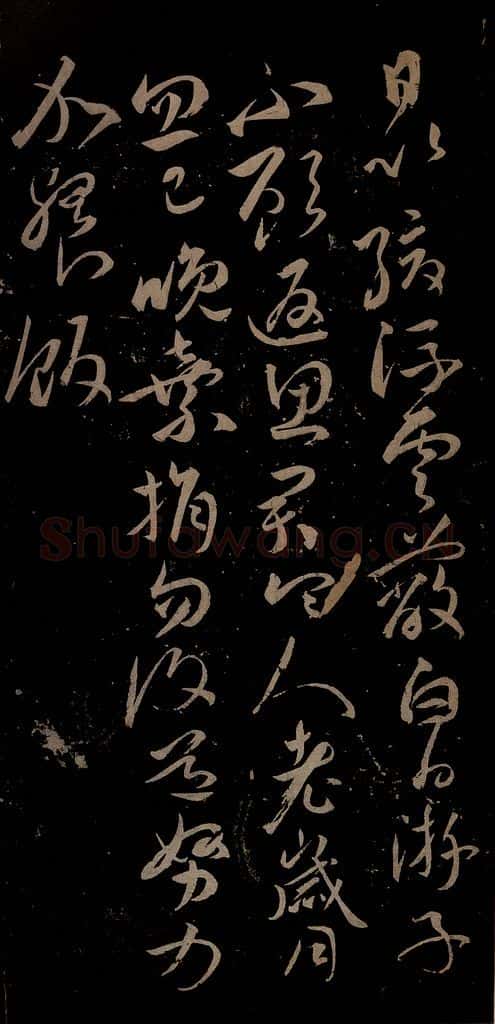 日以緩浮雲蔽白日游子
不顧返思君令人老歲月
忽已晚棄捐勿復道努力
加餐飯
Shufawang.CN